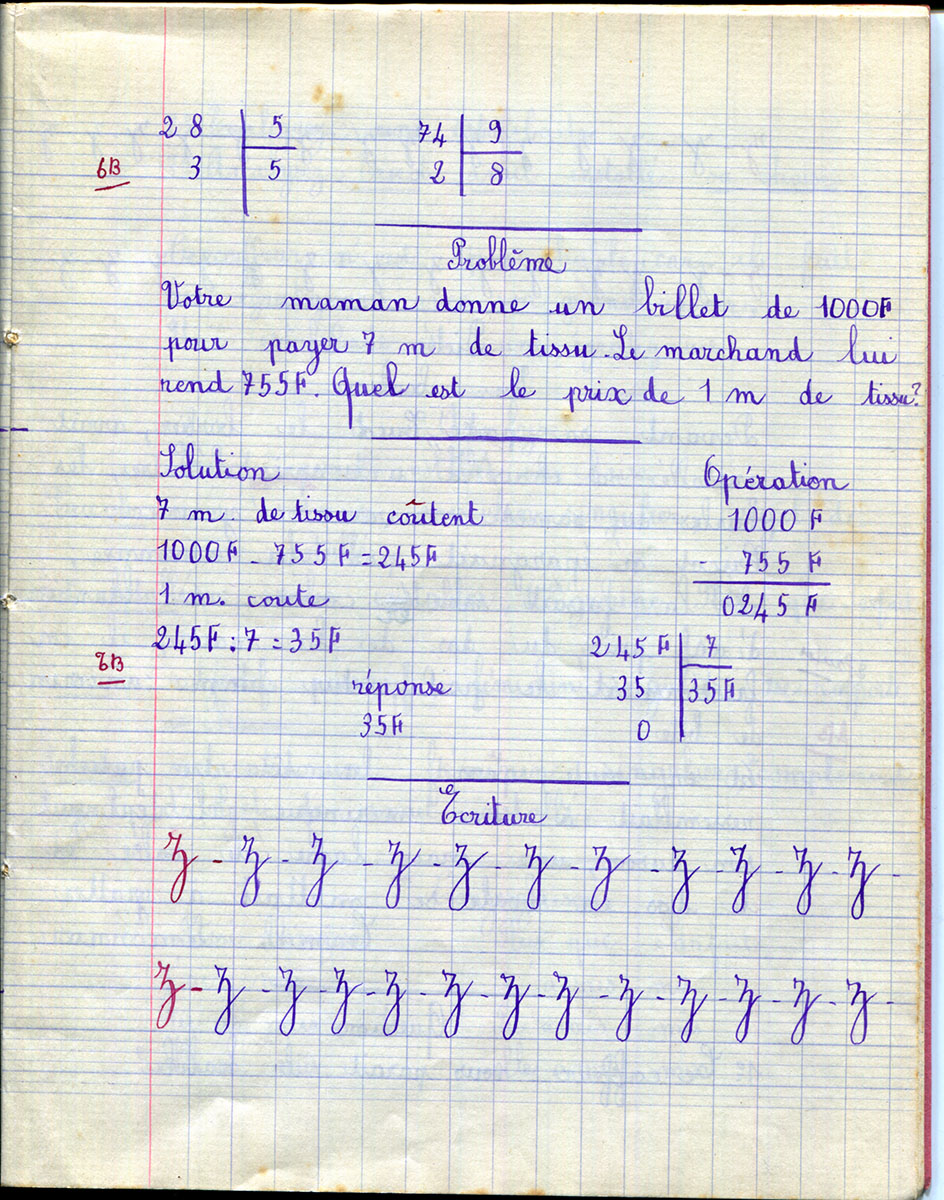 28 | 5 74 | 9
6B 3 | 5 2 | 8
Problème
Votre maman donne un billet de 1000F
pour payer 7 m de tissu. Le marchand lui
rend 755F. Quel est le prix de 1 m de tissu?
Solution Opération
7 m. de tissu coûtent 1000 F
1000F - 755F = 245F - 755 F
1 m. coute 0245 F
245F : 7 = 35F 245 F | 7
8B réponse 35 | 35F
35F 0
Ecriture
z - z - z - z - z - z - z - z - z - z - z -
z - z - z - z - z - z - z - z - z - z - z - z - z -